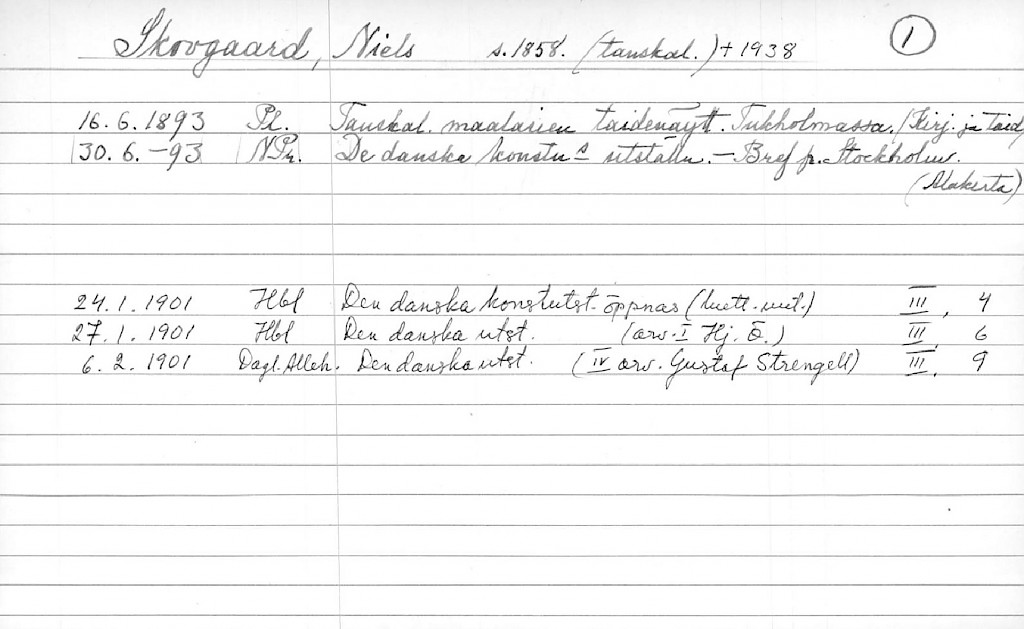 Skovgaard, Niels s. 1858. (tanskal.) + 1938 1
16.6.1893 Pl. Tanskal. maalarien taidenäytt. Tukholmassa. (Kirj. ja taid)
30.6.-93 N.Pr. De danska konstn:s utställn. - Bref fr. Stockholm.
(Alakerta)
24.1.1901 Hbl Den danska konstutst. öppnas (luett. mit.) III, 4
27.1.1901 Hbl Den danska utst. (arv. I Hj. Ö.) III, 6
6.2.1901 Dagl. Alleh. Den danska utst. (IV arv. Gustaf Strengell) III, 9